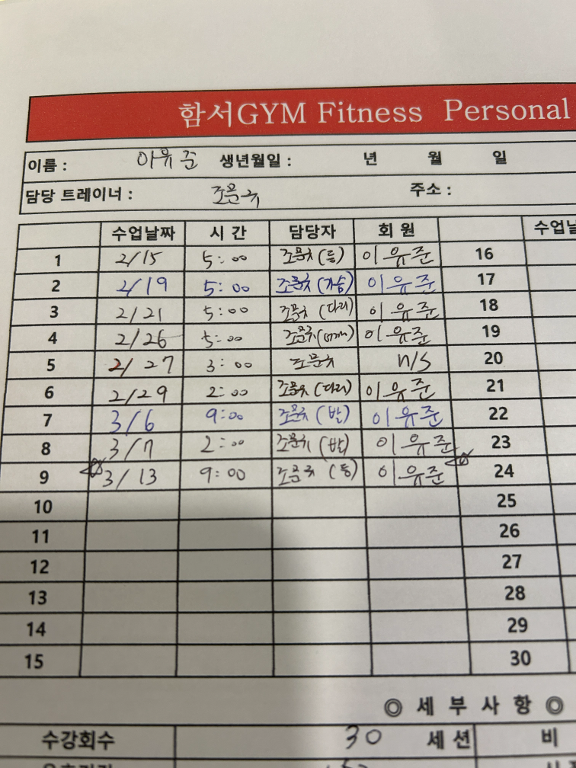 함서GYM Fitness Personal
이름 : 이유준 생년월일 : 년 월 일
담당 트레이너 : 주소 :
수업날짜 시 간 담당자 회 원 수업날
1 2/15 5:00 (등) 이유준 16
2 2/19 5:00 (가슴) 이유준 17
3 2/21 5:00 (다리) 이유준 18
4 2/26 5:00 이유준 19
5 2/27 3:00 n/s 20
6 2/29 2:00 (다리) 이유준 21
7 3/6 9:00 (발) 이유준 22
8 3/7 2:00 (발) 이유준 23
9 3/13 9:00 (등) 이유준 24
10 25
11 26
12 27
13 28
14 29
15 30
◎ 세 부 사 항 ◎
수강회수 30 세션 비